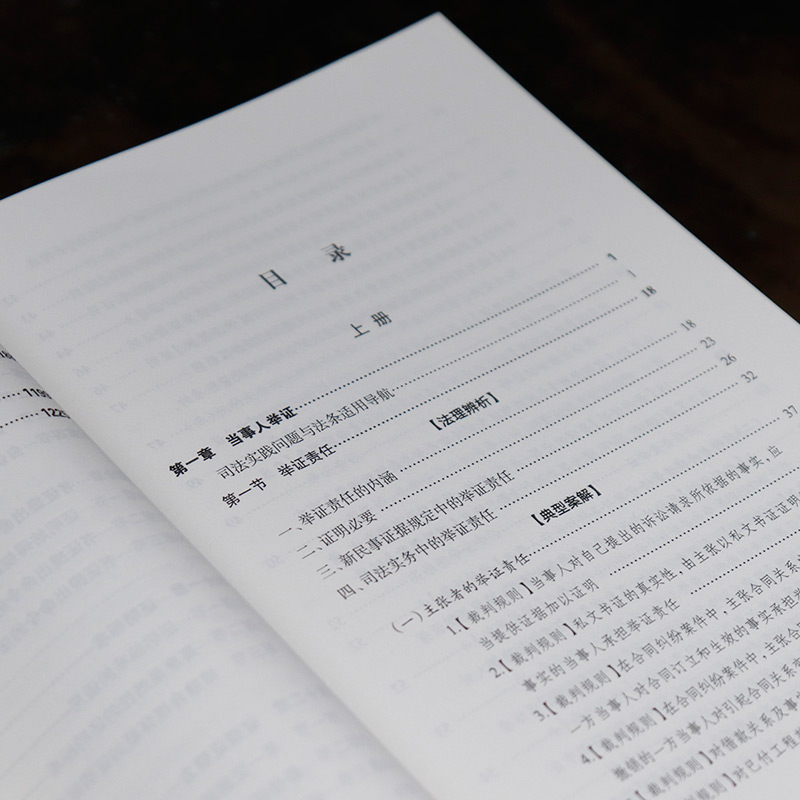 目 录
上 册
第一章 当事人举证 1
司法实践问题与法条适用导航 1
第一节 举证责任 18
【法理辨析】
一、举证责任的内涵 18
二、证明必要 23
三、新民事证据规定中的举证责任 26
四、司法实务中的举证责任 32
【典型案解】
(一)主张者的举证责任 37
1.【裁判规则】当事人对自己提出的诉讼请求所依据的事实,应
当提供证据加以证明
2.【裁判规则】私文书证的真实性,由主张以私文书证证明
事实的当事人承担举证责任
3.【裁判规则】在合同纠纷案件中,主张合同关系
一方当事人对合同订立和生效的事实承担举
4.【裁判规则】在合同纠纷案件中,主张合
撤销的一方当事人对引起合同关系
【裁判规则】对借款关系及事
【裁判规则】对已付工程
119
122